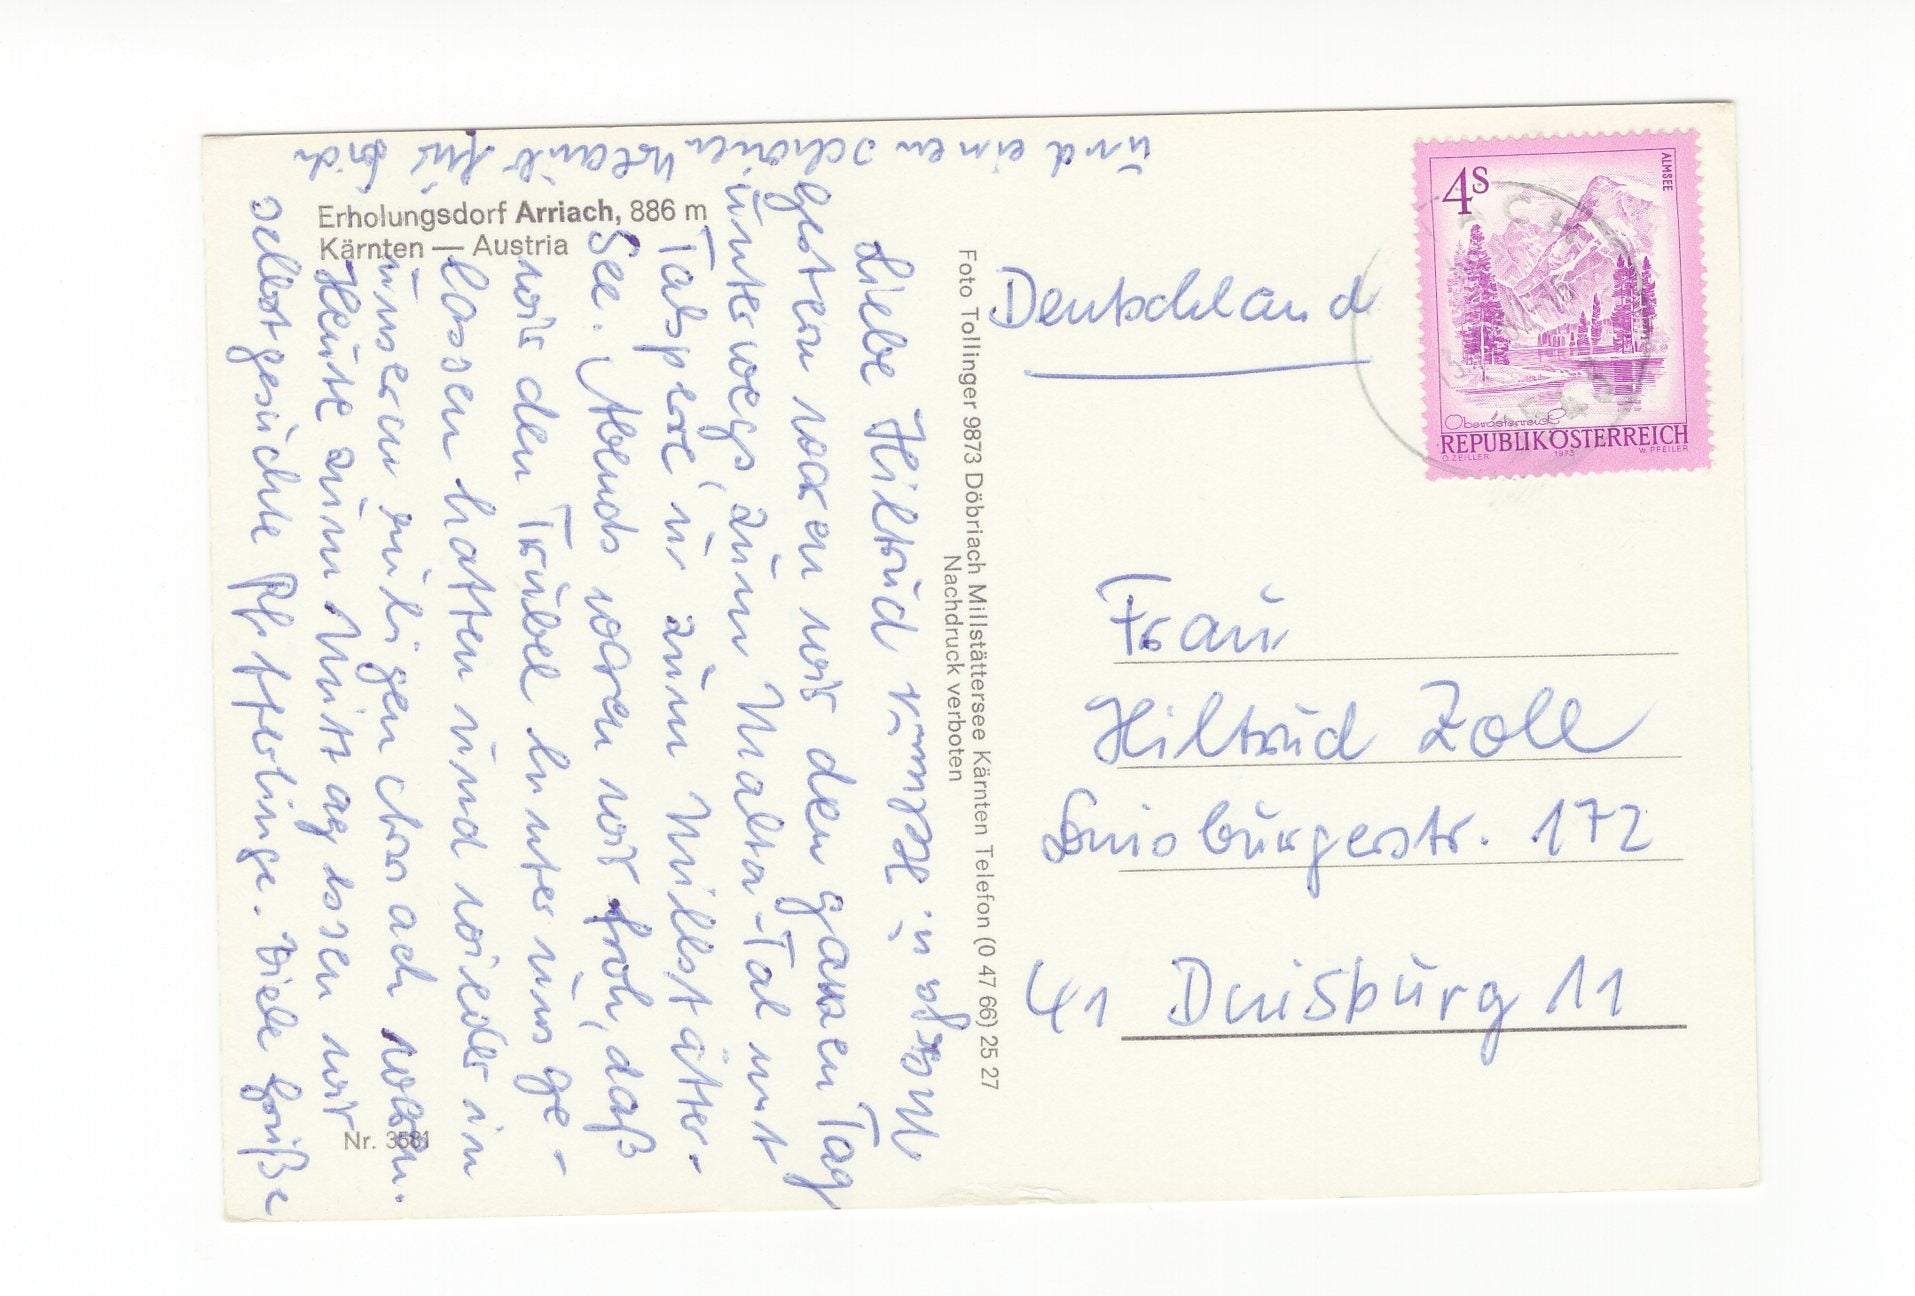 Erholungsdorf Arriach, 886 m
Kärnten — Austria
Liebe Hiltrud
gestern waren wir den ganzen Tag
unterwegs, zum Malta-Tal mit
Talsperre, zum Millstätter-
See. Abends waren wir froh, daß
wir den Trubel hinter uns ge-
lassen hatten und wieder in
unserem ruhigen Arriach waren.
Heute zum Mittagessen wir
selbstgesuchte Pfifferlinge. Viele Grüße
und einen schönen Urlaub für Dich
Foto Tollinger 9873 Döbriach Millstättersee Kärnten Telefon (0 47 66) 25 27
Nachdruck verboten
Nr. 3581
Deutschland
4S
ALMSEE
Oberösterreich
REPUBLIK ÖSTERREICH
O. ZEILLER 1973 W. PFEILER
Frau
Hiltrud Zoll
Duisburgerstr. 172
41 Duisburg 11